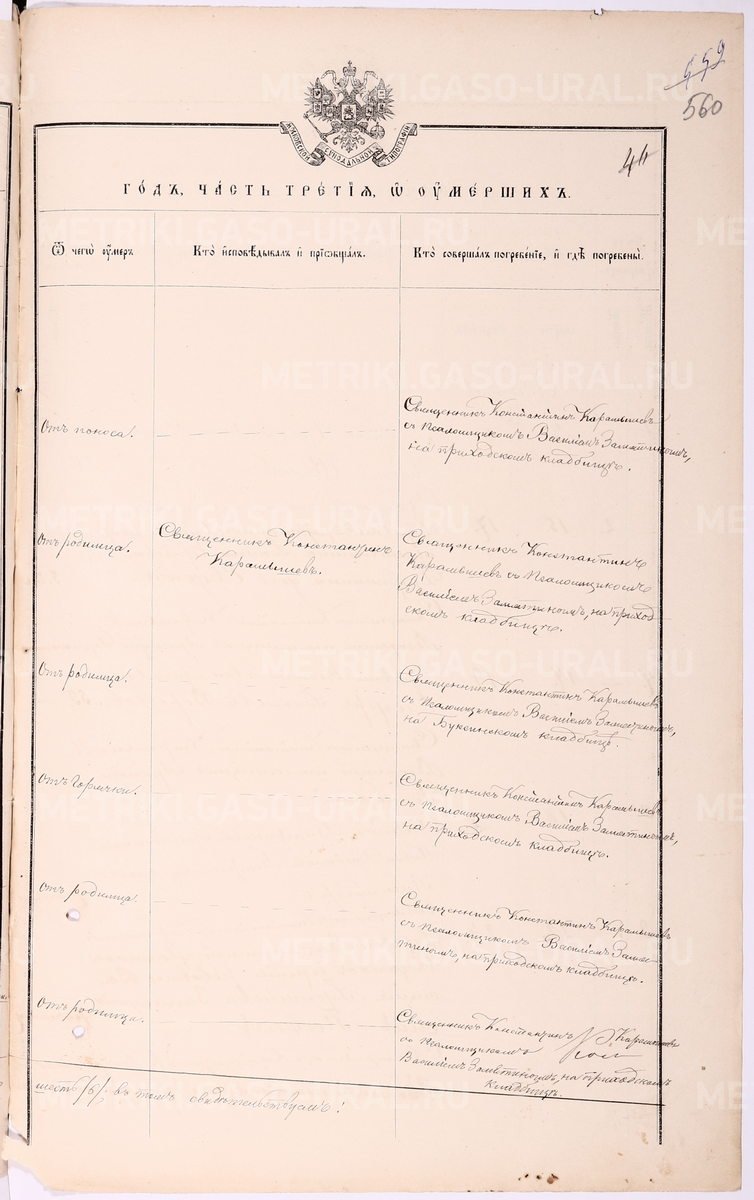 559
560
МОСКОВСКОЙ СѴНОДАЛЬНОЙ ТИПОГРАФІИ
METRIKI.GASO-URAL.RU
ГОДЪ, ЧАСТЬ ТРЕТІЯ, Ѿ ОУМЕРШИХЪ.
Ѿ чегѡ оумеръ
Кто исповѣдывалъ и прїѡбщалъ.
Кто совершалъ погребенїе, и гдѣ погребены.
Отъ поноса.
Священникъ Константинъ Карамышевъ
съ псаломщикомъ Василіемъ Замятинымъ,
на приходскомъ кладбищѣ.
Отъ родимца.
Священникъ Константинъ
Карамышевъ.
Священникъ Константинъ
Карамышевъ съ псаломщикомъ
Василіемъ Замятинымъ, на приход
скомъ кладбищѣ.
Отъ родимца.
Священникъ Константинъ Карамышевъ
съ псаломщикомъ Василіемъ Замятинымъ,
на кладбищѣ.
Отъ горячки.
Священникъ Константинъ Карамышевъ
съ псаломщикомъ Василіемъ Замятинымъ,
на приходскомъ кладбищѣ.
Отъ родимца.
Священникъ Константинъ Карамышевъ
съ псаломщикомъ Василіемъ Замя-
тинымъ, на приходскомъ кладбищѣ.
Отъ родимца.
Священникъ Константинъ Карамышевъ
съ псаломщикомъ
Василіемъ Замятинымъ, на приходскомъ
кладбищѣ.
шесть /6/; въ томъ свидѣтельствуемъ: